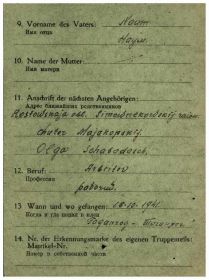 9. Vorname des Vaters: Naum
Имя отца Наум
10. Name der Mutter:
Имя матери
11. Anschrift der nächsten Angehörigen:
Адрес ближайших родственников
Rostowskaja obl.
Chutor Majakowskij
Olga
12. Beruf: Arbeiter
Профессия рабочий
13. Wann und wo gefangen: 18.10.1941
Когда и где пошел в плен
Таганрог
14. Nr. der Erkennungsmarke des eigenen Truppenteils:
Matrikel-Nr.
Номер в собственной части